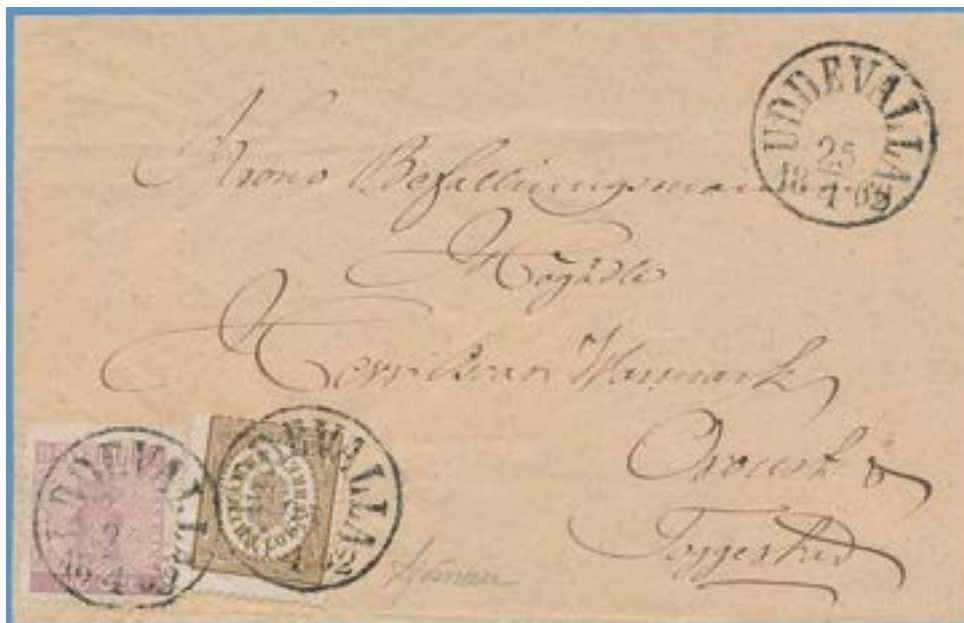 UDDEVALLA
25
18 4 62
Krono Befallningsman
Högädle
Herr Oscar Warmark
Oroust &
Toggestad
UDDEVALLA
2
18 4 62
UDDEVALLA
62